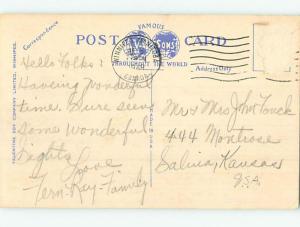 FAMOUS
POST CARD
SONS
THROUGHOUT THE WORLD
Correspondence
Address Only
WINNIPEG
CANADA
VALENTINE & SONS
COMPANY LIMITED, WINNIPEG.
Hello Folks:
Having wonderful
time. Sure seen
some wonderful
sights. Love
Fern-Ray-Family
Mr & Mrs John
444 Montrose
Salina, Kansas
USA